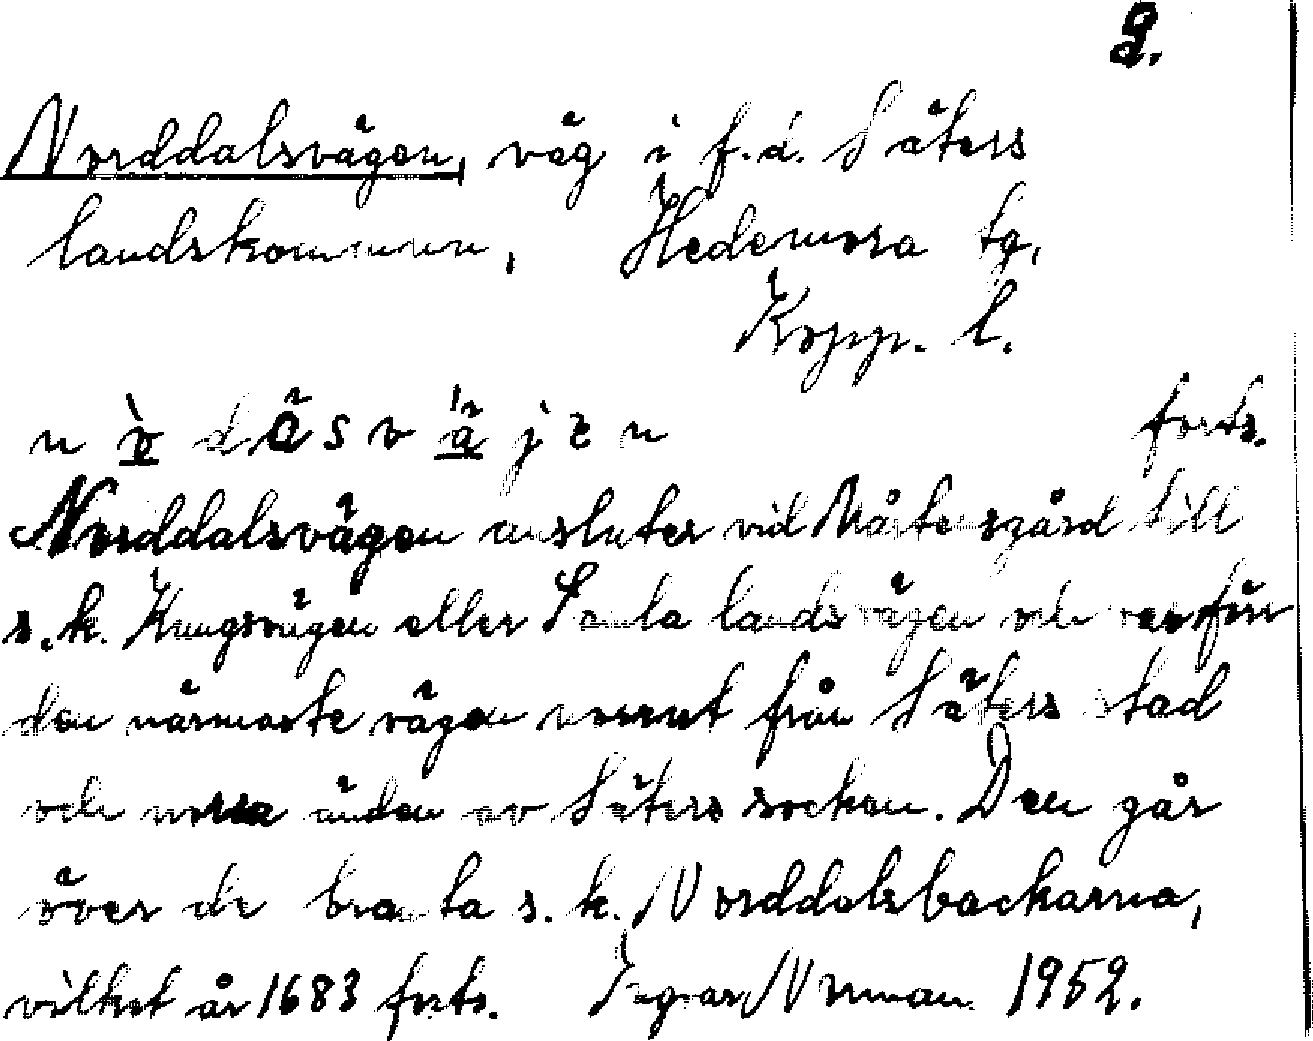 2.
Norddalsvägen, väg i f.d. Säters
landskommun, Hedemora tg,
Kopp. l.
forts.
Norddalsvägen ansluter vid Mårtensgård till
s.k. Kungsvägen eller Gamla landsvägen och var förr
den närmaste vägen norrut från Säters stad
och norra änden av Säters socken. Den går
över de branta s.k. Norddalsbackarna,
vilket år 1683 forts. Ingvar Norman 1952.